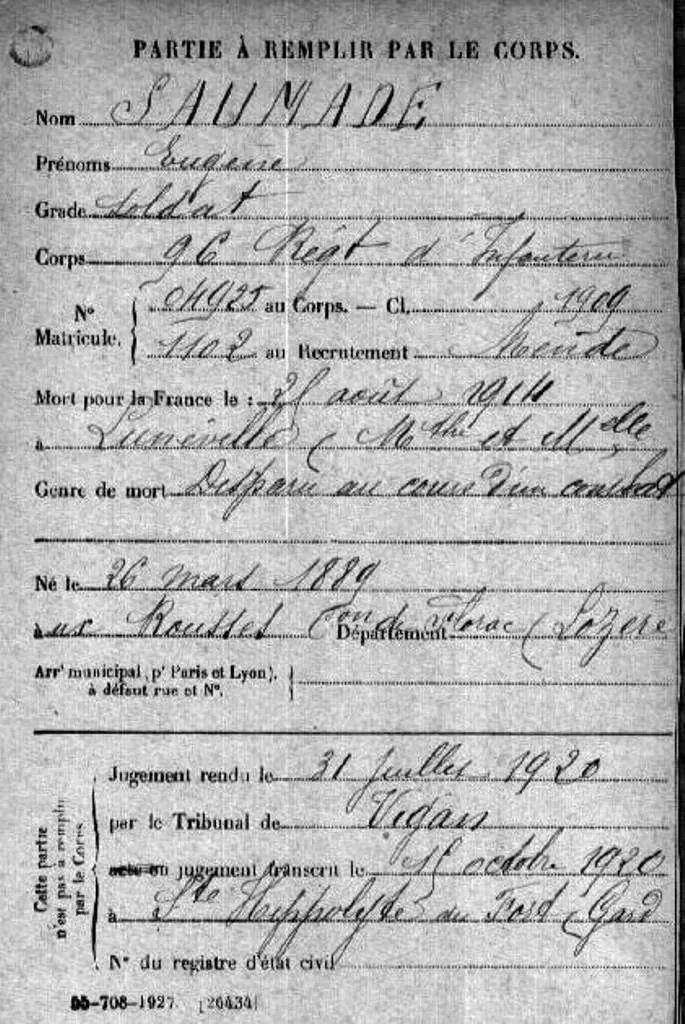 PARTIE À REMPLIR PAR LE CORPS.
Nom SAUMADE
Prénoms Eugène
Grade soldat
Corps 96 Régt d'Infanterie
N° Matricule. 04925 au Corps. — Cl. 1909
1102 au Recrutement Mende
Mort pour la France le : août 1914
à Lunéville (Mthe et Melle
Genre de mort Disparu au cours d'un combat
Né le 26 mars 1889
aux Rousses Con de Florac Département (Lozère
Arrt municipal (pr Paris et Lyon),
à défaut rue et N°.
Cette partie n'est pas à remplir par le Corps.
Jugement rendu le 31 juillet 1920
par le Tribunal de Vigan
acte ou jugement transcrit le octobre 1920
à Ste Hippolyte du Fort (Gard
N° du registre d'état civil
-708-1927. [26434]